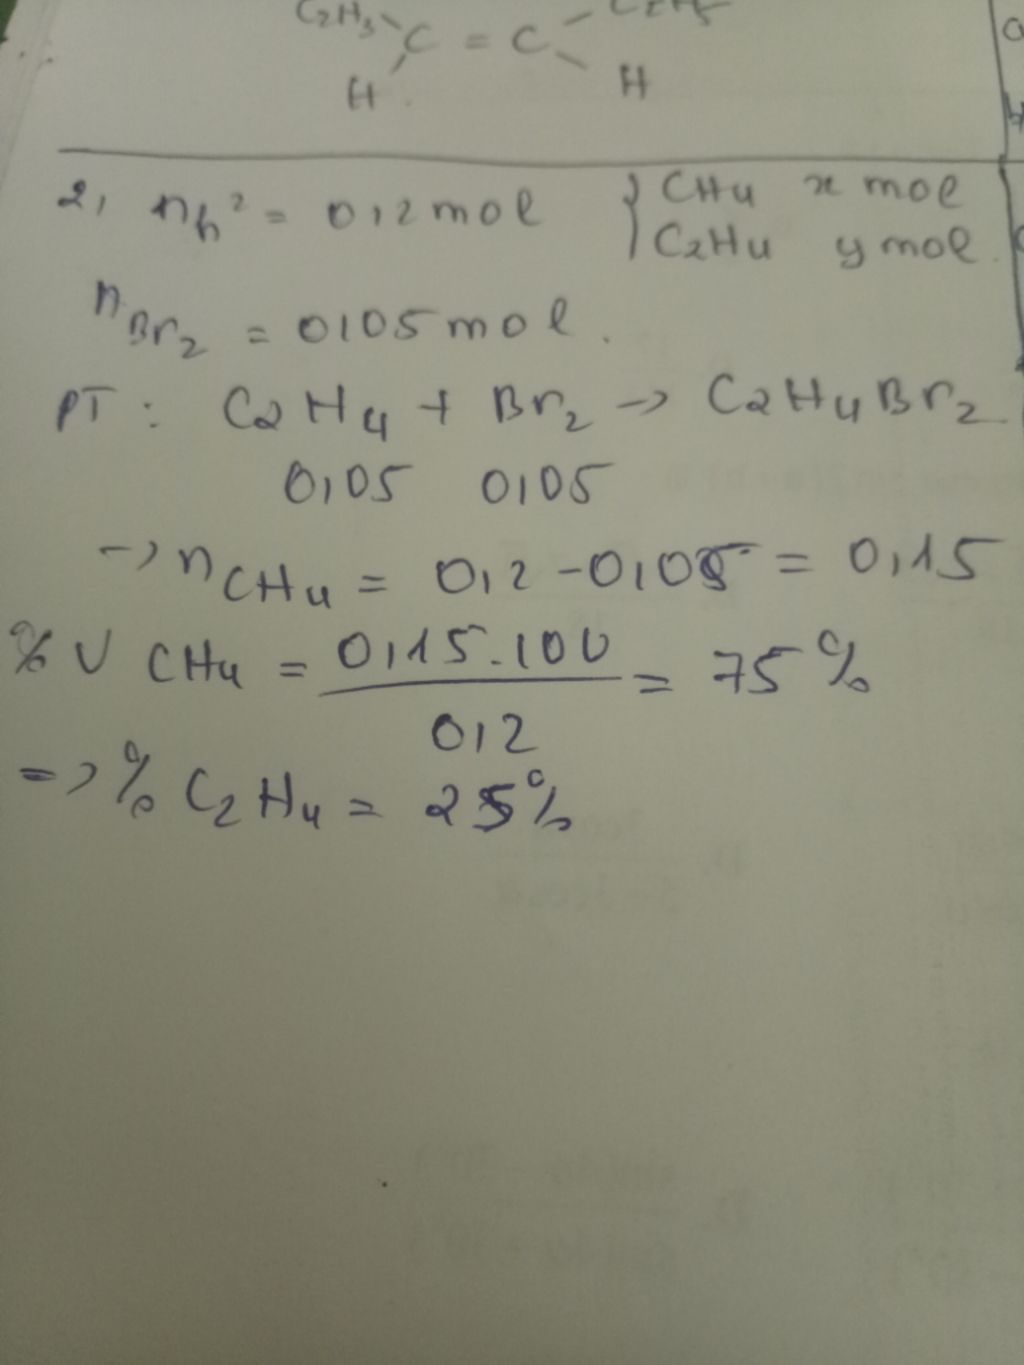 C2H5 C = C C2H5
H H
2, nh² = 0,2 mol { CH4 x mol
C2H4 y mol.
nBr2 = 0,05 mol.
PT: C2H4 + Br2 -> C2H4Br2
0,05 0,05
-> nCH4 = 0,2 - 0,05 = 0,15
% V CH4 = 0,15.100 / 0,2 = 75%
=> % C2H4 = 25%